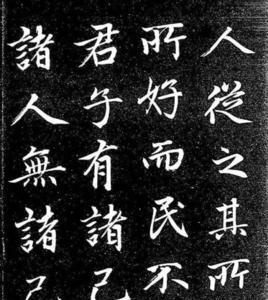 人從之其所
所好而民不
君子有諸己
諸人無諸己